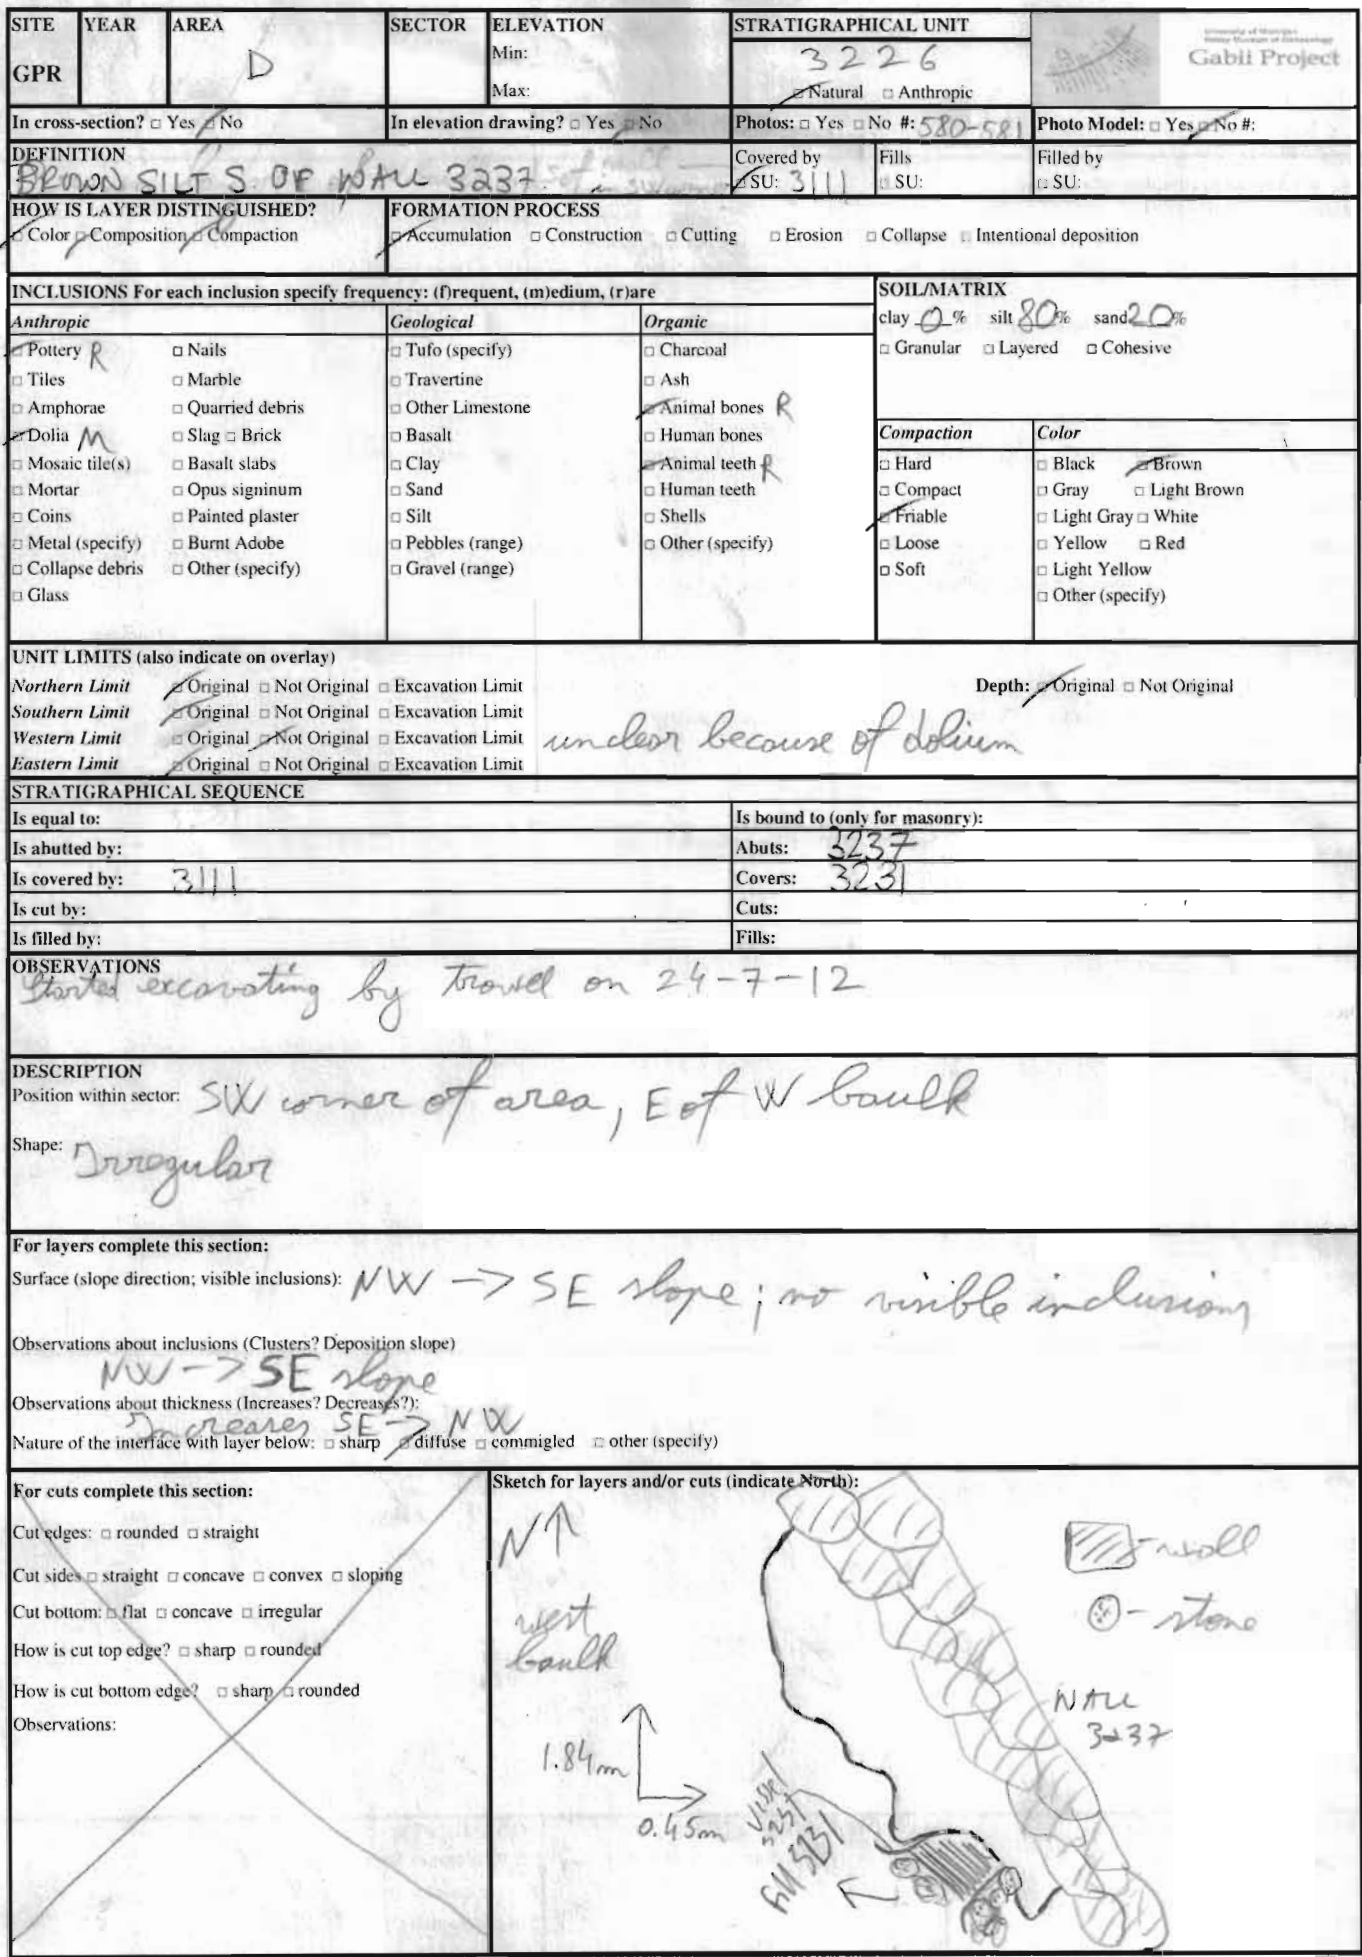 SITE YEAR AREA SECTOR ELEVATION STRATIGRAPHICAL UNIT
GPR D Min: Max: 3226
□ Natural □ Anthropic
Gabii Project
In cross-section? □ Yes □ No In elevation drawing? □ Yes □ No Photos: □ Yes □ No #: 580-581 Photo Model: □ Yes □ No #:
DEFINITION
BROWN SILT S OF WALL 3237
Covered by
□ SU: 3111
Fills
□ SU:
Filled by
□ SU:
HOW IS LAYER DISTINGUISHED?
□ Color □ Composition □ Compaction
FORMATION PROCESS
□ Accumulation □ Construction □ Cutting □ Erosion □ Collapse □ Intentional deposition
INCLUSIONS For each inclusion specify frequency: (f)requent, (m)edium, (r)are
Anthropic
□ Pottery R □ Nails
□ Tiles □ Marble
□ Amphorae □ Quarried debris
□ Dolia M □ Slag □ Brick
□ Mosaic tile(s) □ Basalt slabs
□ Mortar □ Opus signinum
□ Coins □ Painted plaster
□ Metal (specify) □ Burnt Adobe
□ Collapse debris □ Other (specify)
□ Glass
Geological
□ Tufo (specify)
□ Travertine
□ Other Limestone
□ Basalt
□ Clay
□ Sand
□ Silt
□ Pebbles (range)
□ Gravel (range)
Organic
□ Charcoal
□ Ash
□ Animal bones R
□ Human bones
□ Animal teeth R
□ Human teeth
□ Shells
□ Other (specify)
SOIL/MATRIX
clay 0 % silt 80 % sand 20 %
□ Granular □ Layered □ Cohesive
Compaction
□ Hard
□ Compact
□ Friable
□ Loose
□ Soft
Color
□ Black □ Brown
□ Gray □ Light Brown
□ Light Gray □ White
□ Yellow □ Red
□ Light Yellow
□ Other (specify)
UNIT LIMITS (also indicate on overlay)
Northern Limit □ Original □ Not Original □ Excavation Limit Depth: □ Original □ Not Original
Southern Limit □ Original □ Not Original □ Excavation Limit
Western Limit □ Original □ Not Original □ Excavation Limit unclear because of dolium
Eastern Limit □ Original □ Not Original □ Excavation Limit
STRATIGRAPHICAL SEQUENCE
Is equal to: Is bound to (only for masonry):
Is abutted by: Abuts: 3237
Is covered by: 3111 Covers: 3231
Is cut by: Cuts:
Is filled by: Fills:
OBSERVATIONS
Started excavating by trowel on 24-7-12
DESCRIPTION
Position within sector: SW corner of area, E of W baulk
Shape: Irregular
For layers complete this section:
Surface (slope direction; visible inclusions): NW -> SE slope; no visible inclusions
Observations about inclusions (Clusters? Deposition slope)
NW -> SE slope
Observations about thickness (Increases? Decreases?):
Increases SE -> NW
Nature of the interface with layer below: □ sharp □ diffuse □ commigled □ other (specify)
For cuts complete this section:
Cut edges: □ rounded □ straight
Cut sides □ straight □ concave □ convex □ sloping
Cut bottom: □ flat □ concave □ irregular
How is cut top edge? □ sharp □ rounded
How is cut bottom edge? □ sharp □ rounded
Observations:
Sketch for layers and/or cuts (indicate North):
N
west
baulk
1.84m
0.45m
fill 3231
- wall
- stone
WALL
3237